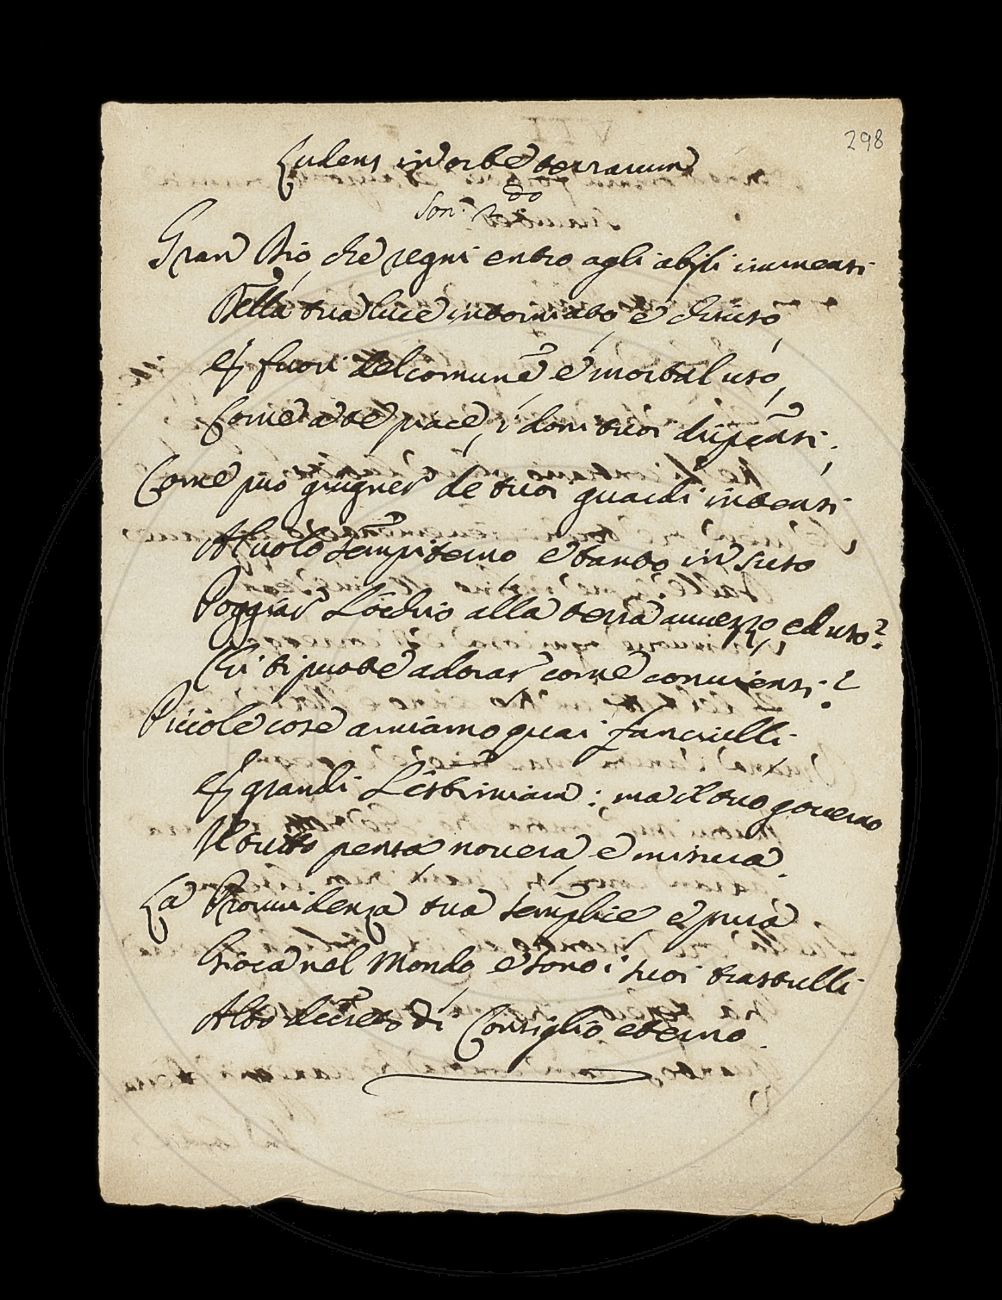 298
Ludens in orbe terrarum
Son.
Gran Dio che regni entro agli abissi immensi
Della tua luce intorniato e chiuso,
E fuori del comune e mortal uso,
Come a te piace, i doni tuoi dispensi;
Come può giugner de tuoi guardi intensi
Al volo sempiterno e tanto in suso
Poggiar L'occhio alla terra avvezzo, ed uso?
Chi ti puote adorar come conviensi?
Piccole cose amiamo quai fanciulli
E grandi L'estimiam: ma il tuo governo
Il tutto pensa novera, e misura.
La Provvidenza tua semplice e pura
Gioca nel Mondo, e sono i suoi trastulli
Alto decreto di Consiglio eterno.